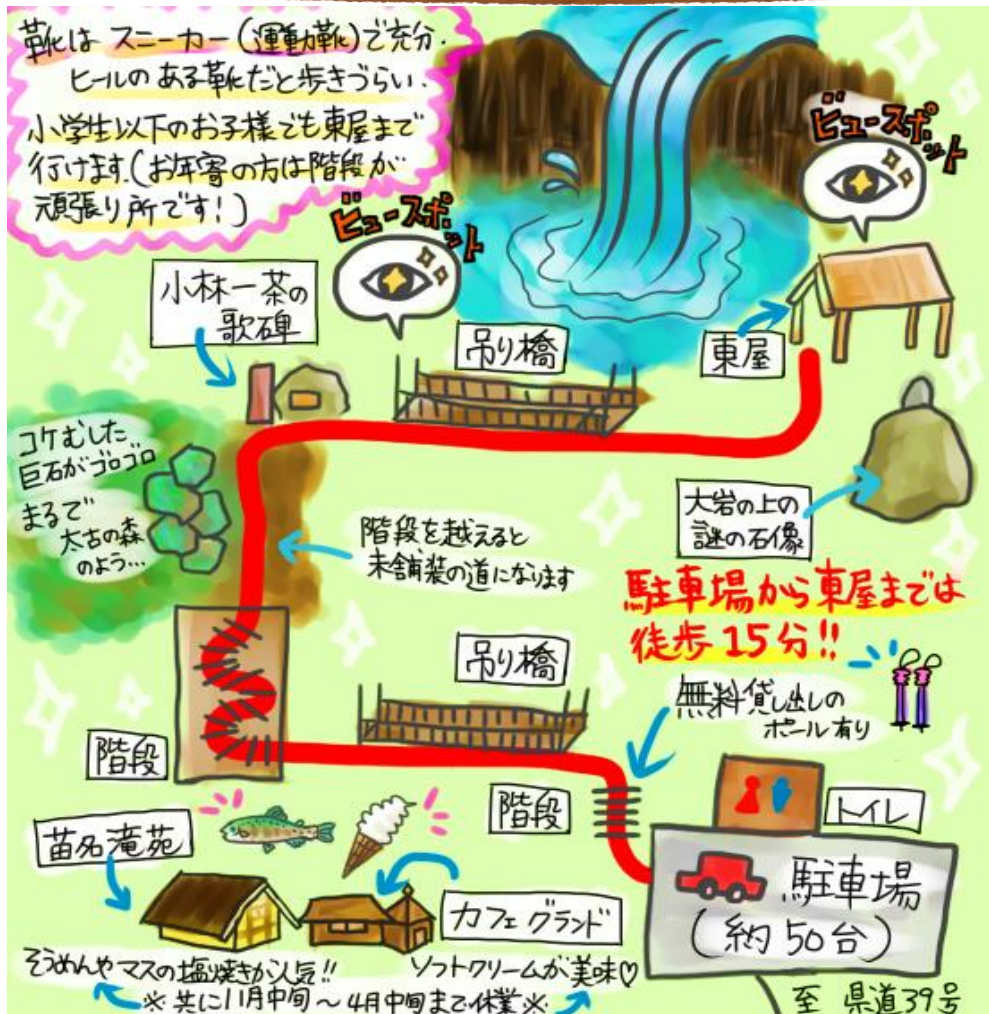 靴は スニーカー(運動靴)で充分.
ヒールのある靴だと歩きづらい.
小学生以下のお子様でも東屋まで
行けます.(お年寄の方は階段が
頑張り所です!)
ビュースポット
ビュースポット
小林一茶の
歌碑
吊り橋
東屋
コケむした
巨石がゴロゴロ
まるで
太古の森
のよう…
階段を越えると
未舗装の道になります
大岩の上の
謎の石像
駐車場から東屋までは
徒歩15分!!
吊り橋
無料貸し出しの
ポール有り
階段
階段
トイレ
苗名滝苑
カフェグランド
駐車場
(約50台)
そうめんやマスの塩焼きが人気!!
ソフトクリームが美味♡
※共に11月中旬～4月中旬まで休業※
至 県道39号